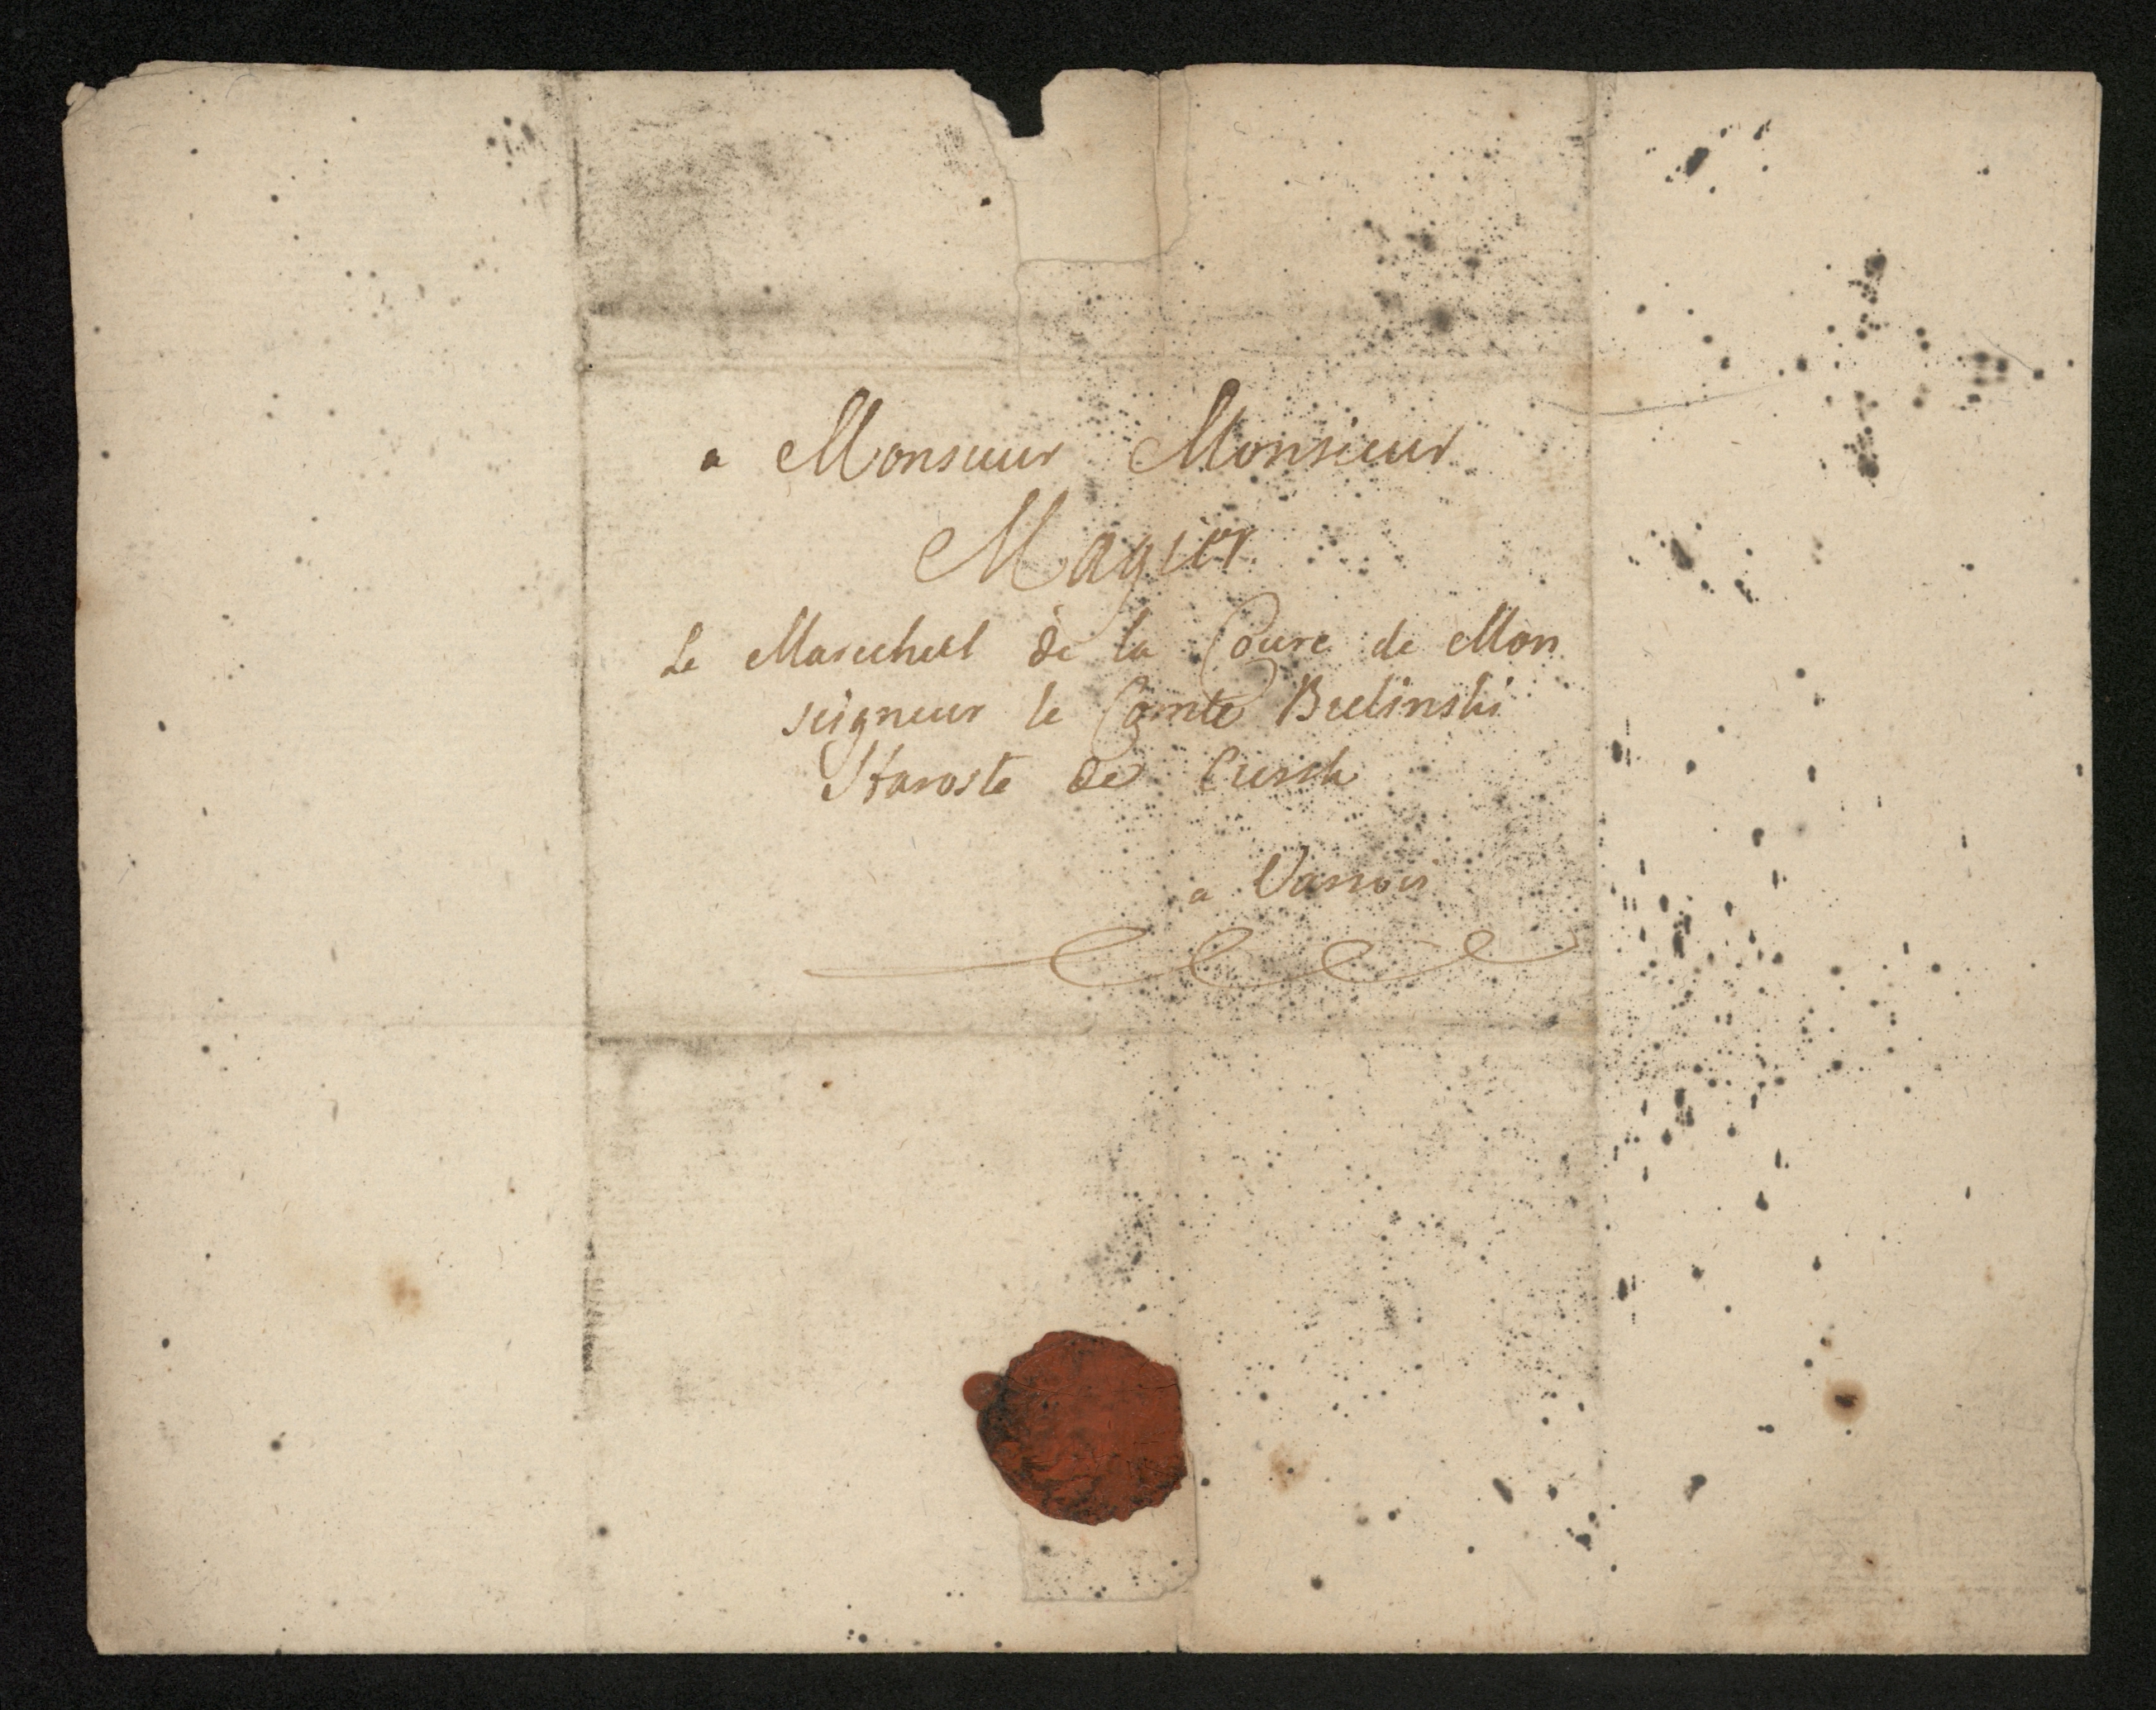 a Monsieur Monsieur
Magier
Le Marechal de la Coure de Mon
seigneur le Comte Bielinski
Staroste de Czersk
a Varsovi